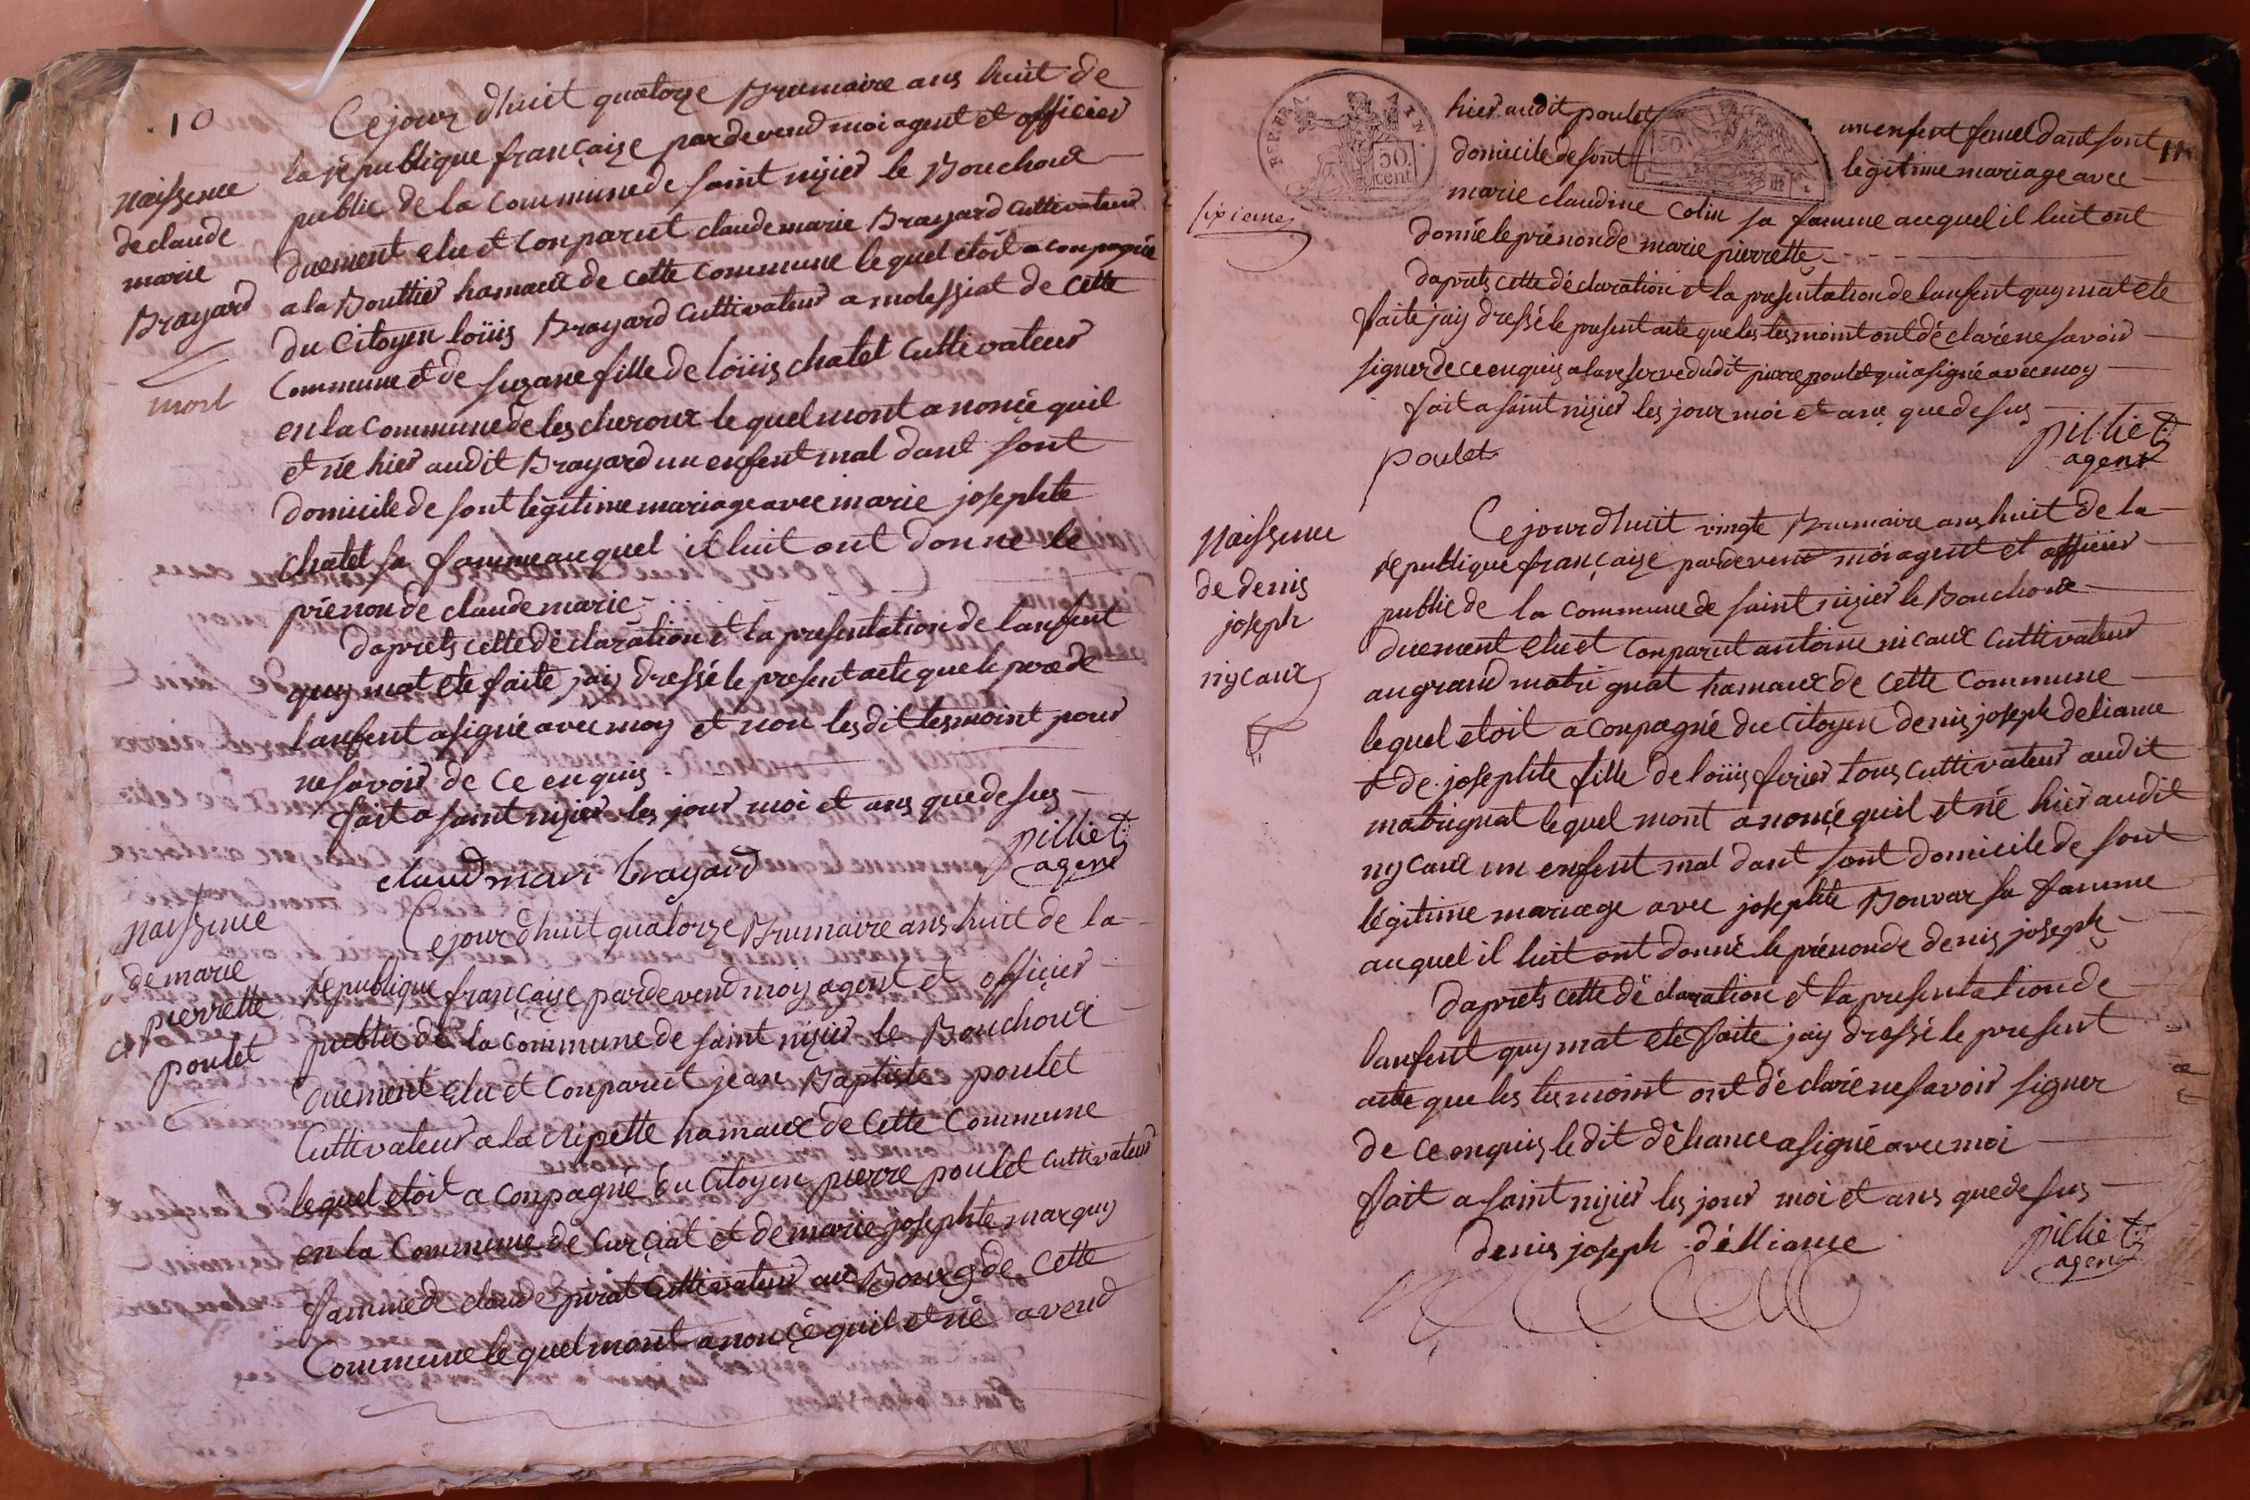 10
Ce jour dhuit quatorze Brumaire ans huit de
la republique françaize pardevend moi agent et officier
public de la commune de saint nizier le Bouchoux
duement elu et Conparut claude marie Brayard Cultivateur
a la Bouttier hamaux de cette commune le quel étoit a conpagnée
du Citoyen loüis Brayard Cultivateur a molessiat de cette
Commune et de suzane fille de loüis chatel Cultivateur
en la commune de les cheroux le quel mont anoncé quil
et né hier audit Brayard un enfent mal dant sont
domicile de sont légitime mariage avec marie josephte
chatel sa famme au quel il luit ont donne le
prénon de claude marie
daprets cette déclaration et la presentation de lanfent
quy mat ete faite jay dressé le present acte que le pere de
lanfent a signé avec moy et non lesdit tesmoint pour
ne savoir de ce enquis
fait a saint nizier les jour moi et ans que de sus
claud mari brayard
pilliet
agent
Naissence
de claude
marie
Brayard
mort
Naissence
de marie
pierrette
poulet
Ce jour dhuit quatorze Brumaire ans huit de la
republique françaize pardevend moy agent et officier
public de la commune de saint nizier le Bouchoux
duement elu et Conparut jean Baptiste poulet
Cultivateur a la ripette hamaux de Cette Commune
lequel etoit a conpagné du Citoyen pierre poulet cultivateur
en la Commune de Curciat et de marie josephte marquy
famme de claude pirat Cultivateur au Bourg de cette
Commune le quel mont anoncé quil et né avend
11
hier audit poulet un enfent femel dant sont
domicile de sont légitime mariage avec
marie claudine Colin sa famme au quel il luit ont
donné le prénon de marie pierrette
daprets cette déclaration et la presentation de lanfent quy mat ete
faite jay dressé le present acte que les tesmoint ont déclaré ne savoir
signer de ce enquis a la reserve dudit pierre poulet qui a signé avec moy
fait a saint nizier les jour moi et ans que de sus
poulet
pilliet
agent
sixieme
50.
cent
Naissence
de denis
joseph
nycaux
Ce jour dhuit vingte Brumaire ans huit de la
republique françaize pardevent moi agent et officier
public de la commune de saint nizier le Bouchoux
duement elu et Conparut antoine nicaux Cultivateur
au grand matrignat hamaux de cette commune
lequel etoit a conpagné du Citoyen denis joseph deliance
et de josephte fille de loüis ferier tous cultivateur audit
matrignat lequel mont anoncé quil et né hier audit
nycaux un enfent mal dant sont domicile de sont
légitime mariage avec josephte Bouvar sa famme
au quel il luit ont donné le prénon de denis joseph
daprets cette déclaration et la presentation de
lanfent quy mat ete faite jay dressé le present
acte que les tesmoint ont déclaré ne savoir signer
de ce enquis le dit déliance a signé avec moi
fait a saint nizier les jour moi et ans que de sus
denis joseph délliance
pilliet
agent